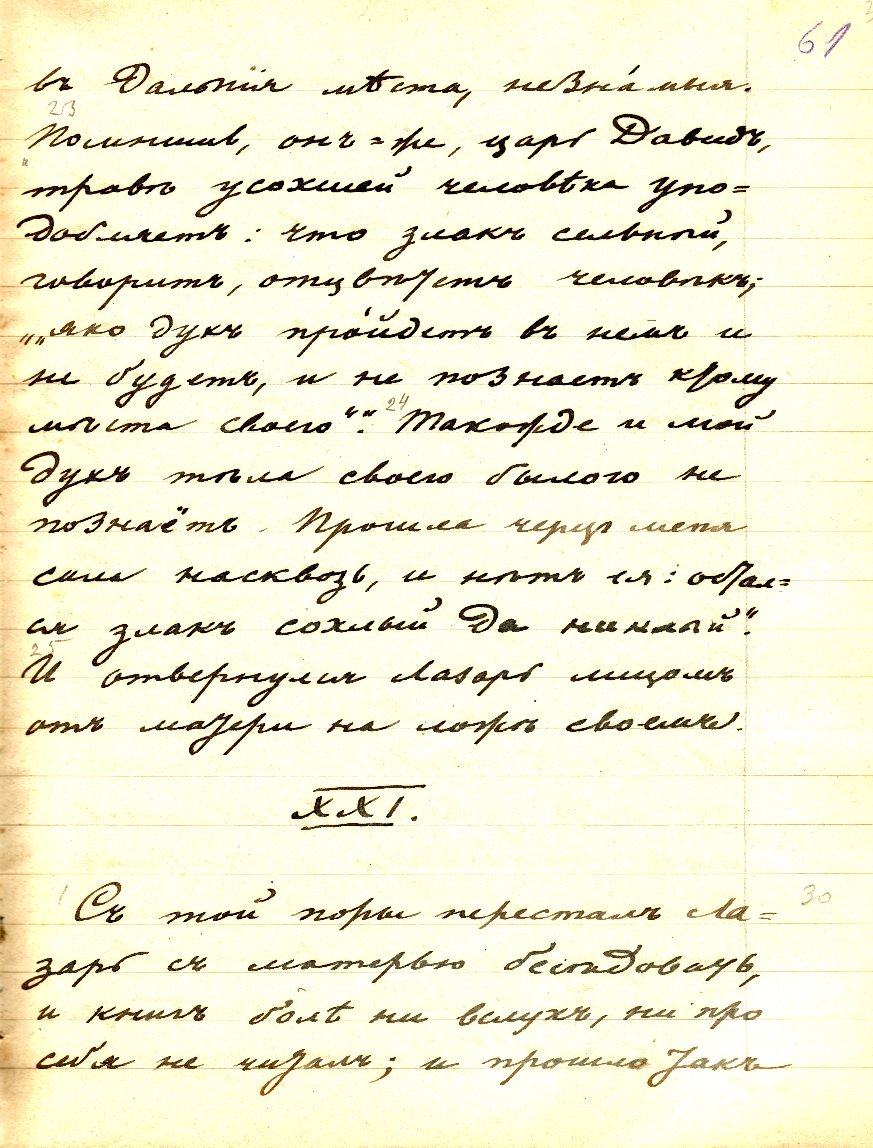 61
въ дальнія мѣста, незна́мыя.
23
"Помнишь, онъ=же, царь Давидъ,
травѣ усохшей человѣка упо=
добляетъ: что злакъ сельный,
говоритъ, отцвѣтетъ человѣкъ;
„„яко духъ про́йдетъ въ немъ и
не будетъ, и не познаетъ к тому
мѣста своего“". 24 Такожде и мой
духъ тѣла своего былого не
познаётъ. Прошла черезъ меня
сила насквозь, и нѣтъ ея: остал=
ся злакъ сохлый да никлый".
25
И отвернулся Лазарь лицомъ
отъ матери на ложѣ своемъ.
XXI.
1 Съ той поры пересталъ Ла= 30
зарь съ матерью бесѣдовать,
и книгъ бо́лѣ ни вслухъ, ни про
себя не читалъ; и прошло такъ